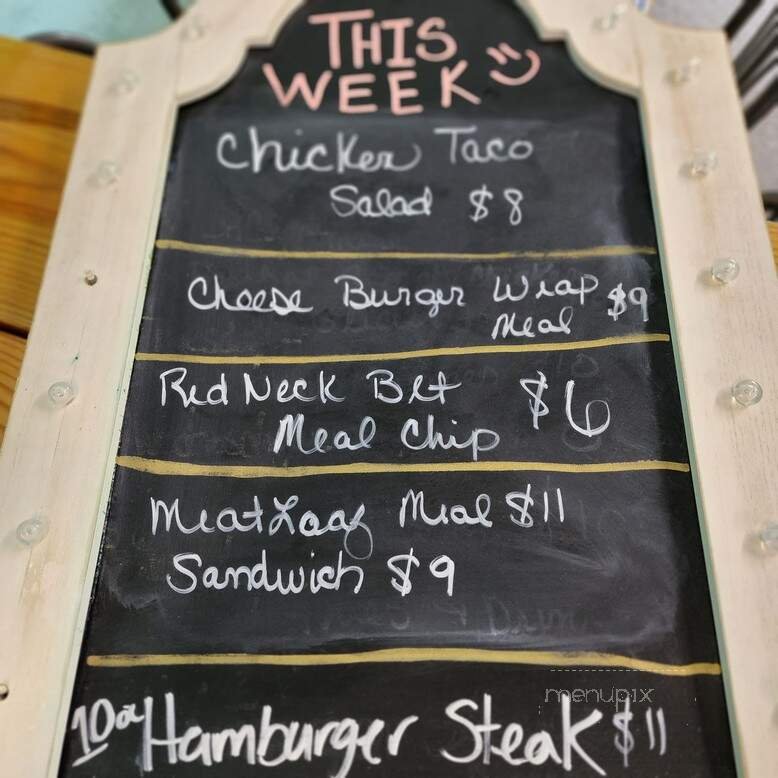 THIS
WEEK
Chicken Taco
Salad $8
Cheese Burger Wrap $9
Meal
Red Neck Blt $6
Meal Chip
Meat Loaf Meal $11
Sandwich $9
10oz Hamburger Steak $11
menupix